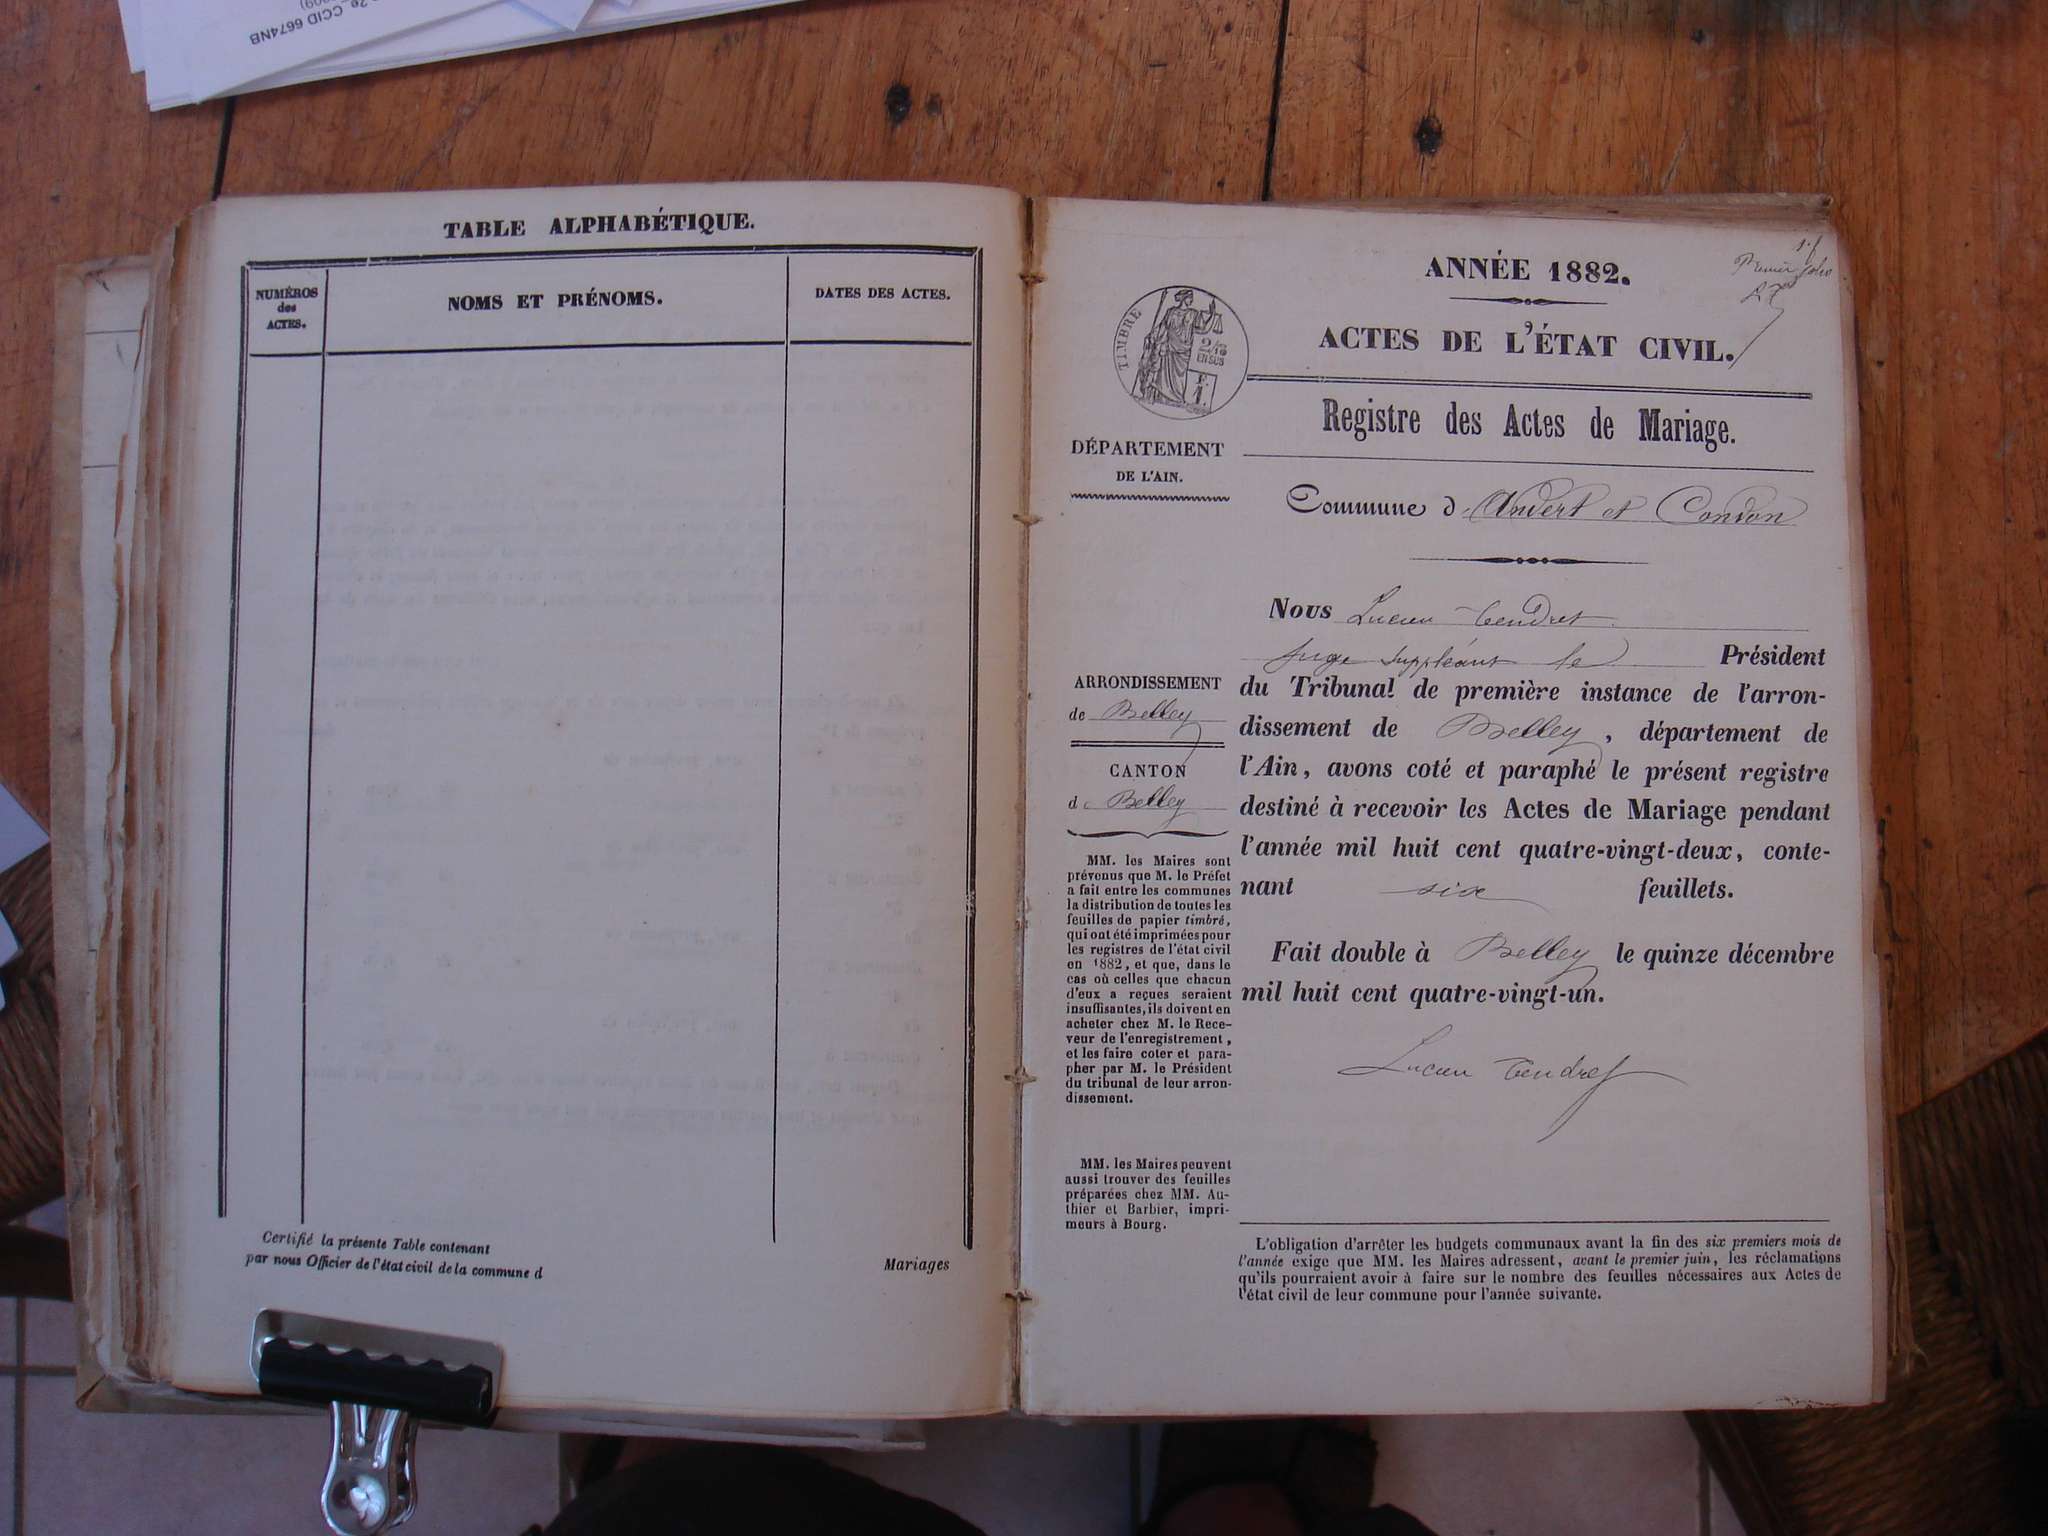 2e, CCID 6674NB
TABLE ALPHABÉTIQUE.
NUMÉROS
des
ACTES.
NOMS ET PRÉNOMS.
DATES DES ACTES.
Certifié la présente Table contenant
par nous Officier de l'état civil de la commune d
Mariages
1.f
Premier folio
ANNÉE 1882.
ACTES DE L'ÉTAT CIVIL.
TIMBRE
2/10
EN SUS
f.
1.
Registre des Actes de Mariage.
DÉPARTEMENT
DE L'AIN.
Commune d'Andert et Condon
Nous Lucien Tendret
juge suppléant le Président
du Tribunal de première instance de l'arron-
dissement de Belley, département de
l'Ain, avons coté et paraphé le présent registre
destiné à recevoir les Actes de Mariage pendant
l'année mil huit cent quatre-vingt-deux, conte-
nant six feuillets.
Fait double à Belley le quinze décembre
mil huit cent quatre-vingt-un.
Lucien Tendret
ARRONDISSEMENT
de Belley
CANTON
de Belley
MM. les Maires sont
prévenus que M. le Préfet
a fait entre les communes
la distribution de toutes les
feuilles de papier timbré,
qui ont été imprimées pour
les registres de l'état civil
en 1882, et que, dans le
cas où celles que chacun
d'eux a reçues seraient
insuffisantes, ils doivent en
acheter chez M. le Rece-
veur de l'enregistrement,
et les faire coter et para-
pher par M. le Président
du tribunal de leur arron-
dissement.
MM. les Maires peuvent
aussi trouver des feuilles
préparées chez MM. Au-
thier et Barbier, impri-
meurs à Bourg.
L'obligation d'arrêter les budgets communaux avant la fin des six premiers mois de
l'année exige que MM. les Maires adressent, avant le premier juin, les réclamations
qu'ils pourraient avoir à faire sur le nombre des feuilles nécessaires aux Actes de
l'état civil de leur commune pour l'année suivante.